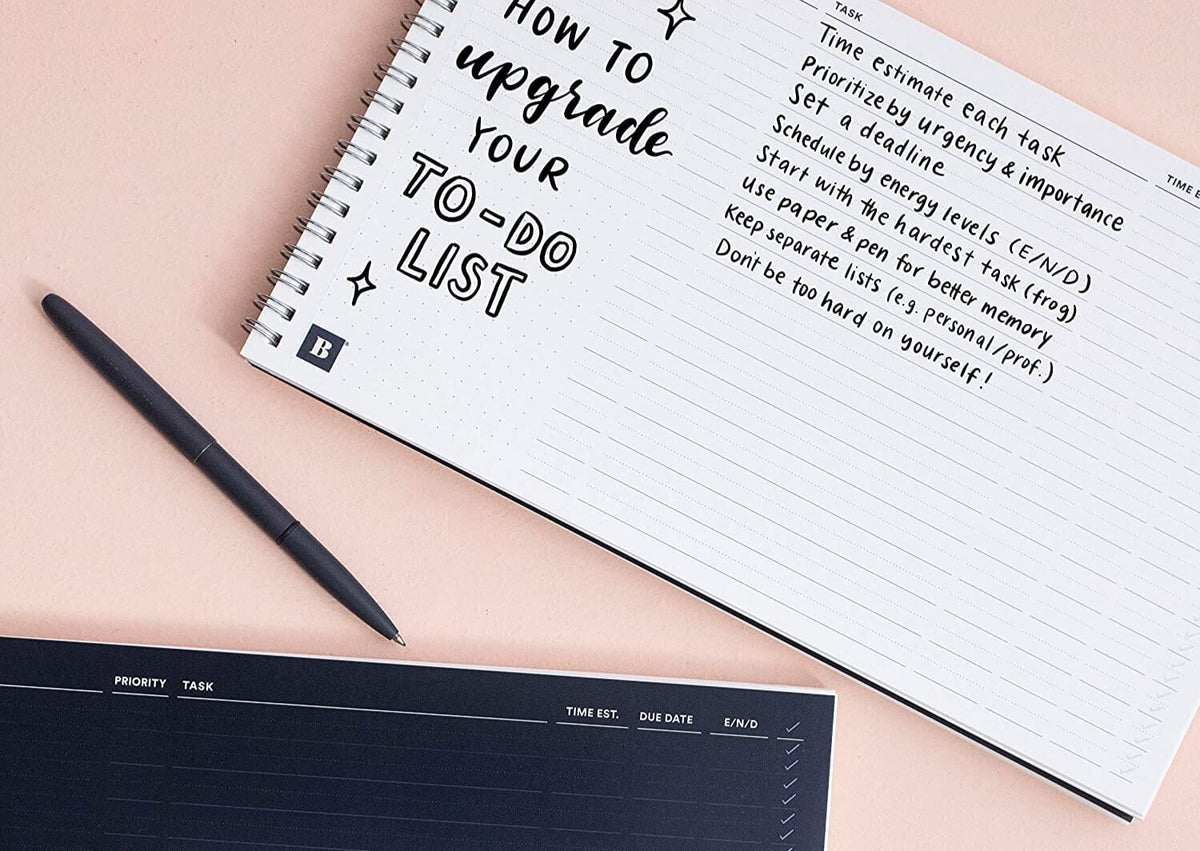 HOW TO
upgrade
YOUR
TO-DO
LIST
B
TASK
Time estimate each task
Prioritize by urgency & importance
Set a deadline
Schedule by energy levels (E/N/D)
Start with the hardest task (frog)
Use paper & pen for better memory
Keep separate lists (e.g. personal/prof.)
Don't be too hard on yourself!
TIME E
PRIORITY TASK TIME EST. DUE DATE E/N/D